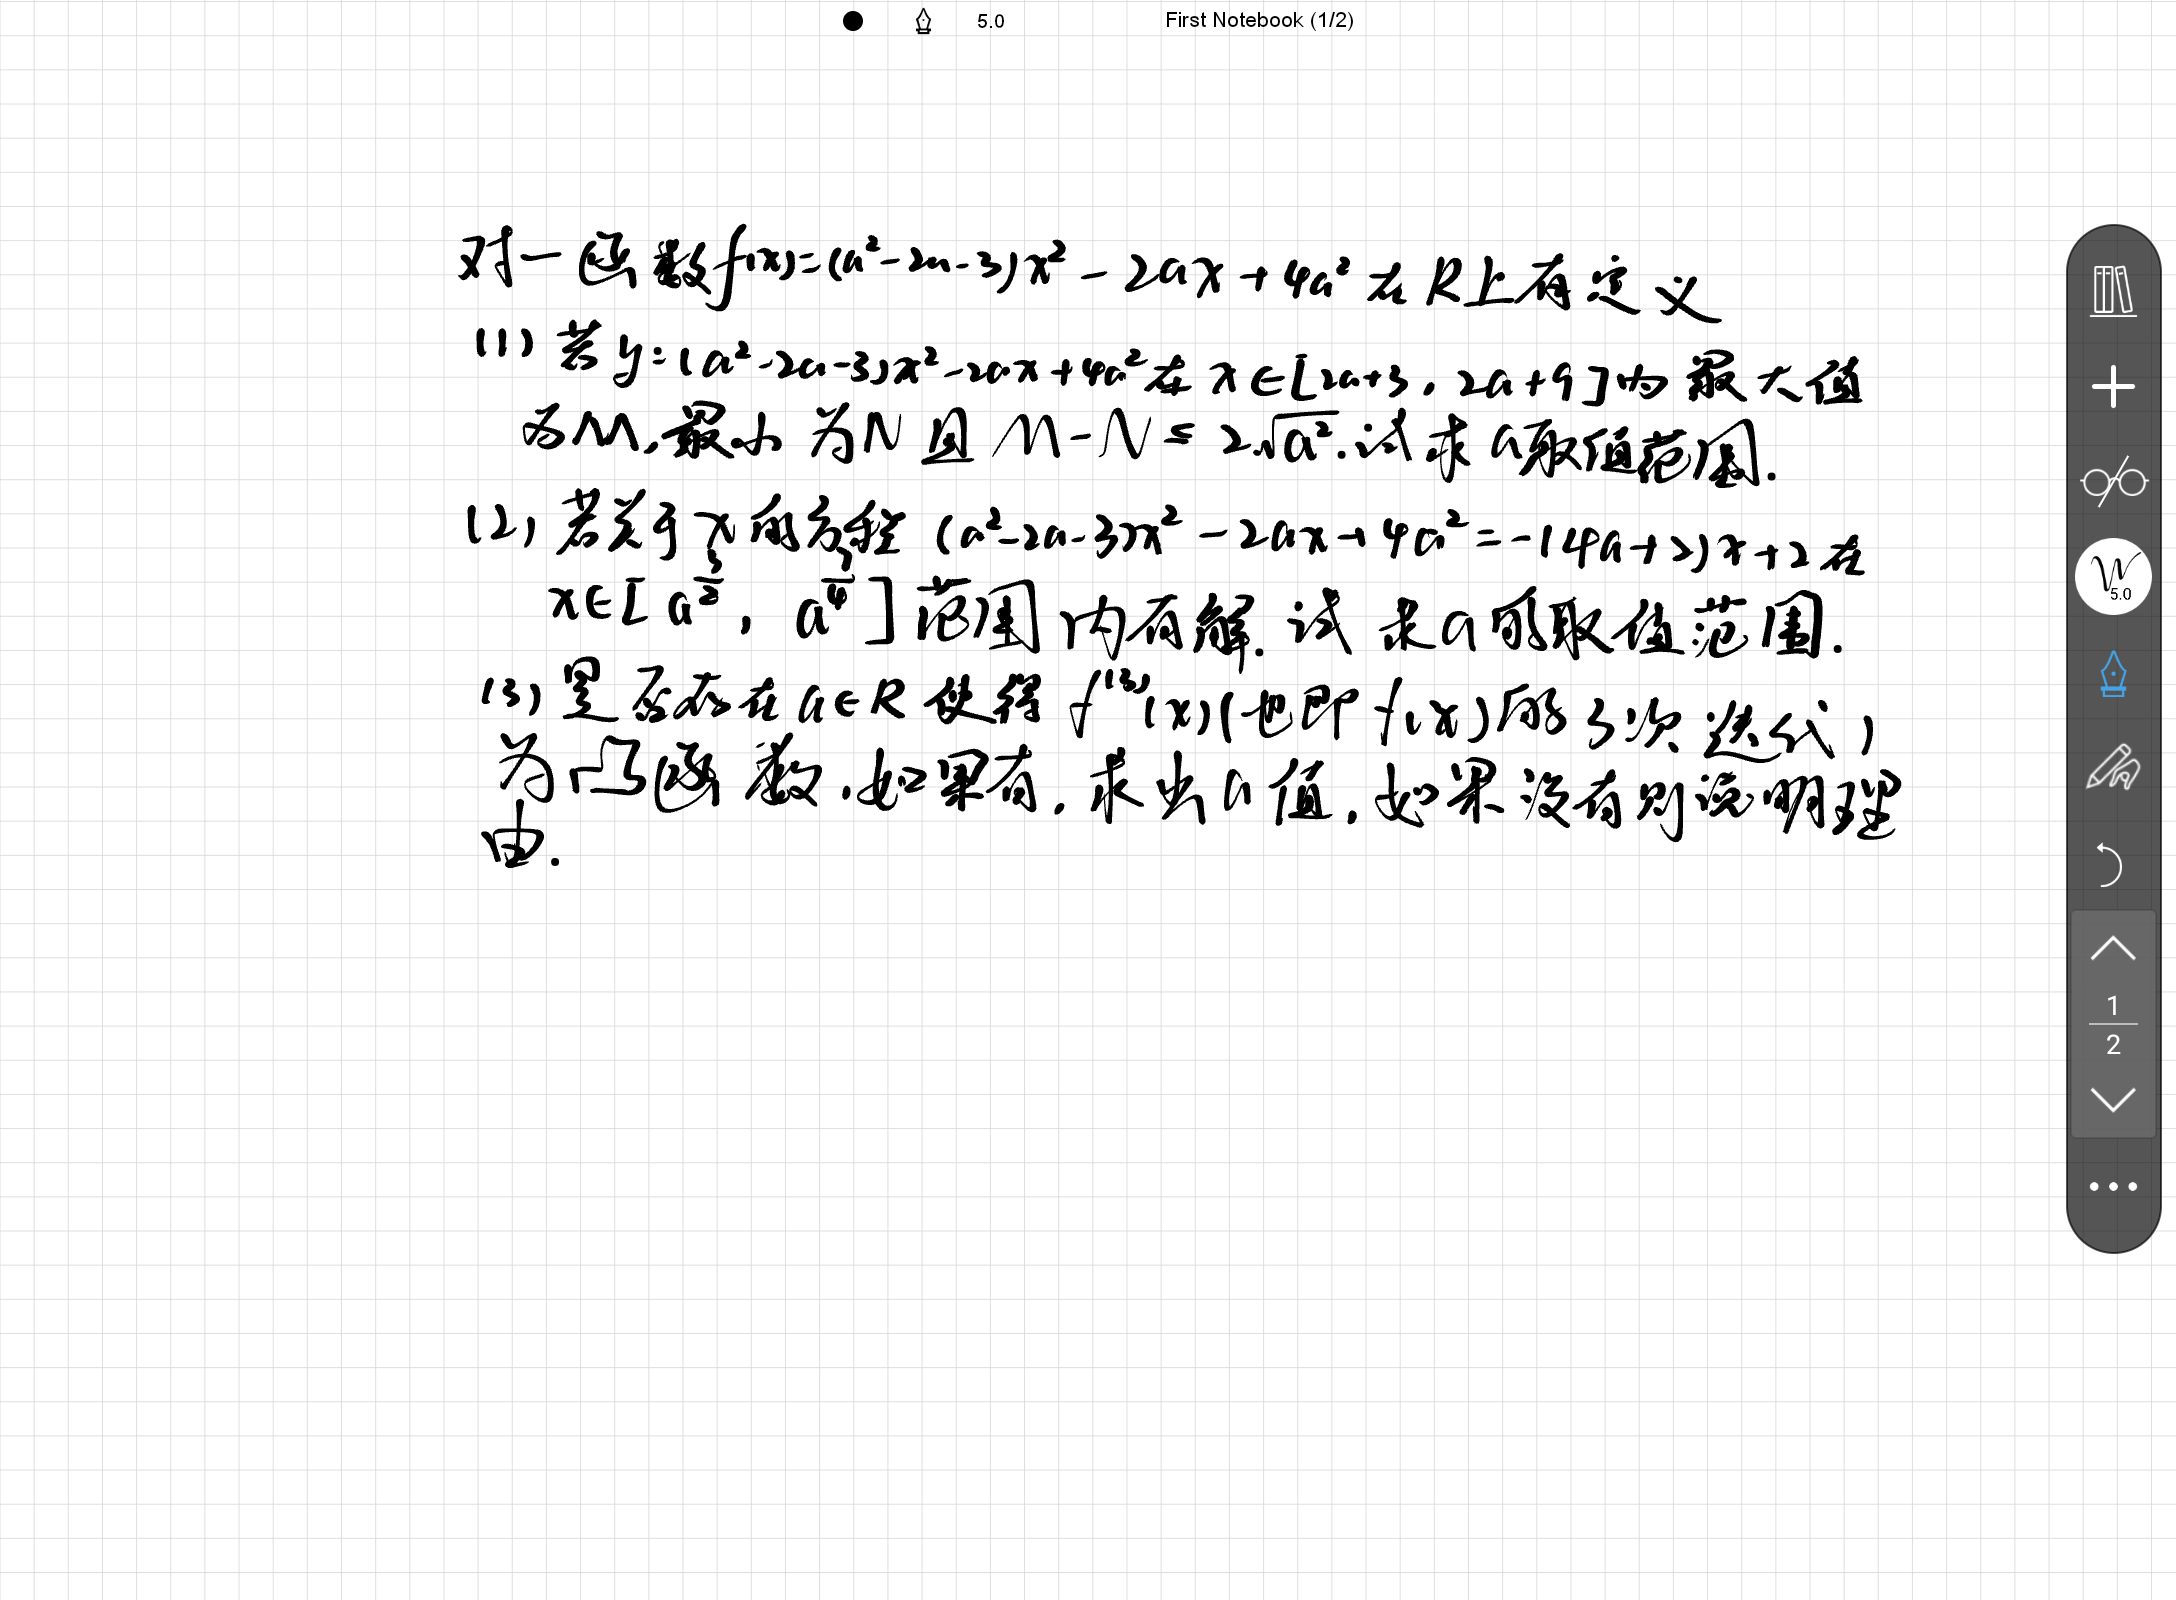 5.0 First Notebook (1/2)
对一函数f(x)=(a²-2a-3)x²-2ax+4a²在R上有定义
(1)若y=(a²-2a-3)x²-2ax+4a²在x∈[2a+3,2a+9]内最大值
为M,最小为N且M-N≤2√a².试求a取值范围.
(2)若关于x的方程(a²-2a-3)x²-2ax+4a²=-(4a+2)x+2在
x∈[a^(3/2), a^(7/4)]范围内有解.试求a的取值范围.
(3)是否存在a∈R使得f⁽³⁾(x)(也即f(x)的3次迭代)
为凸函数.如果有,求出a值,如果没有则说明理
由.
5.0
1
2